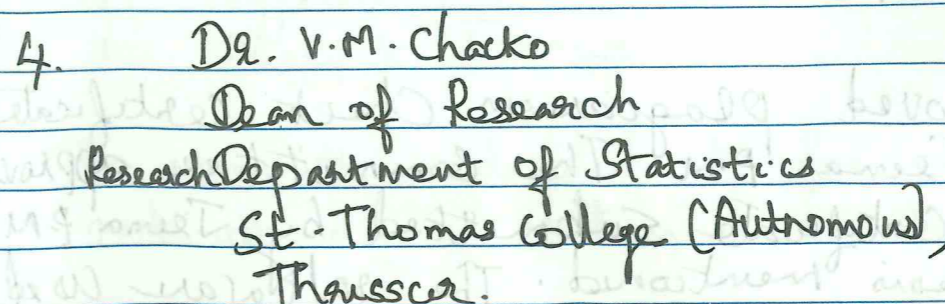 4. Dr. V.M. Chacko
Dean of Research
Research Department of Statistics
St. Thomas College (Autnomous),
Thrisscur.